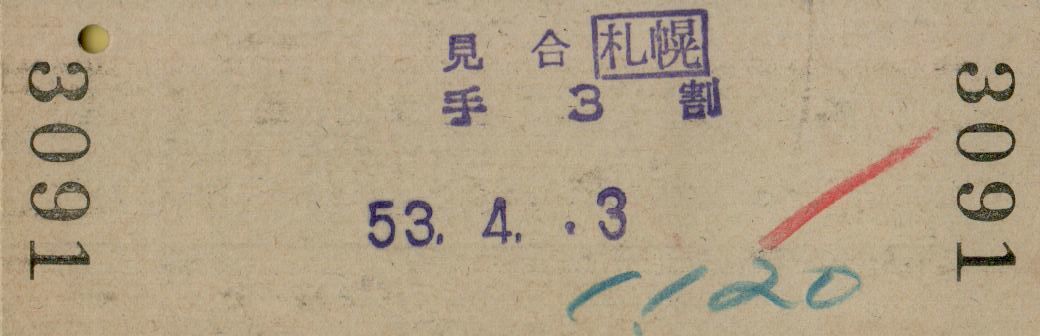 3091
見 合 札幌
手 3 割
53. 4. . 3
1,120
3091